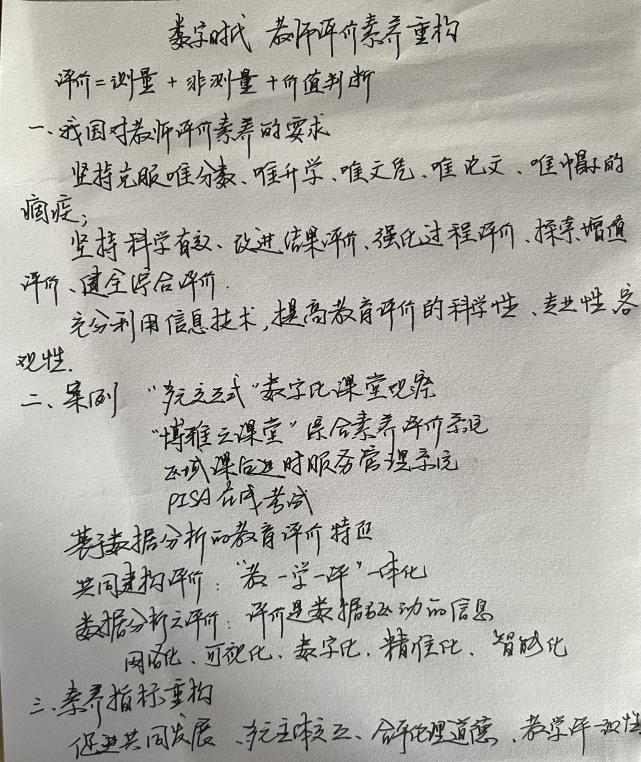 数字时代 教师评价素养重构
评价=测量+非测量+价值判断
一、我国对教师评价素养的要求
坚持克服唯分数、唯升学、唯文凭、唯论文、唯帽子的
痼疾;
坚持科学有效、改进结果评价、强化过程评价、探索增值
评价、健全综合评价.
充分利用信息技术,提高教育评价的科学性、专业性、客
观性.
二、案例 “多元互式”数字化课堂观察
“博雅云课堂”综合素养评价系统
区域课后延时服务管理系统
PISA在线考试
基于数据分析的教育评价特征
共同建构评价:“教一学一评”一体化
数据分析之评价:评价是数据驱动的信息
网络化、可视化、数字化、精准化、智能化
三、素养指标重构
促进共同发展、多元主体 、合乎伦理道德、教学评一致性